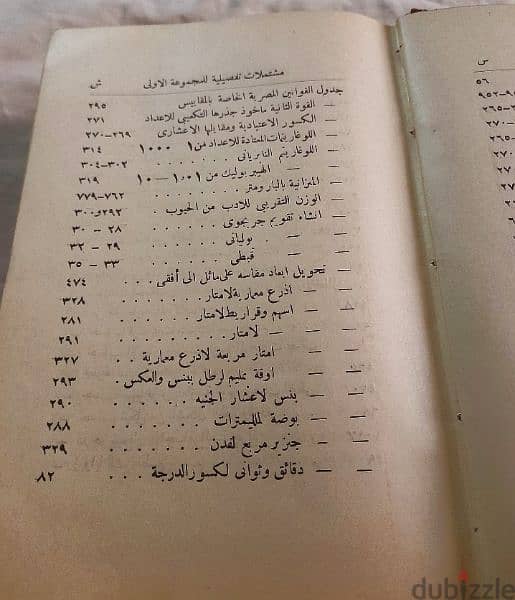 مشتملات تفصيلية للمجموعة الاولى ش
جدول القوانين المصرية الخاصة بالمقاييس ٢٩٥
— القوة الثانية مأخوذ جذرها التكعيبي للاعداد ٢٧١
— الكسور الاعتيادية ومقابلها الاعشارى ٢٦٩–٢٧٠
— اللوغاريتمات المعتادة للاعداد من ١ ١٠٠٠ ٣١٤
— اللوغاريتم النابريانى ٣٠٢–٣٠٤
— — الهيبر بوليك من ١٠١ — ١٠ ٣١٩
— الميزانية بالبارومتر ٧٦٢–٧٧٩
— الوزن التقريبى للاردب من الحبوب ٢٩٢و٣٠٠
— انشاء تقويم جريجوى ٢٨ – ٣٠
— — — يوليانى ٢٩ – ٣٢
— — — قبطى ٣٣ – ٣٥
— تحويل ابعاد مقاسه على مائل الى أفقى ٤٧٤
— — اذرع معمارية لامتار ٣٢٨
— — اسهم وقراريط لامتار ٢٨١
— — — لامتار ٢٩١
— — امتار مربعة لاذرع معمارية ٣٢٧
— — اوقة بمليم لرطل ببنس والعكس ٢٩٣
— — بنس لاعشار الجنيه ٢٩٠
— — بوصة لملليمترات ٢٨٨
— — جنزير مربع لفدن ٣٢٩
— — دقائق وثوانى لكسور الدرجة ٨٢
س
٥٦
٩٥٢–
٢٦٥–
٢٧٠–
dubizzle